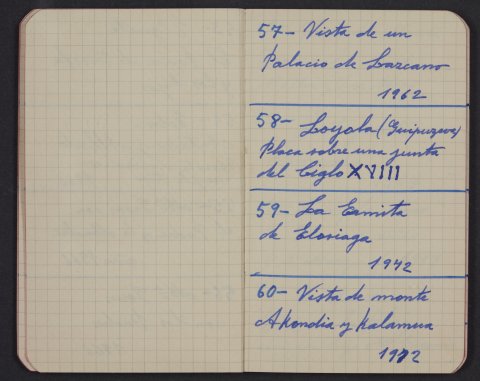 57- Vista de un
Palacio de Lazcano
1962
58- Loyola (Guipuzcoa)
Placa sobre una junta
del Ciglo XVIII
59- La Ermita
de Elosiaga
1972
60- Vista de monte
Akondia y Kalamua
1972